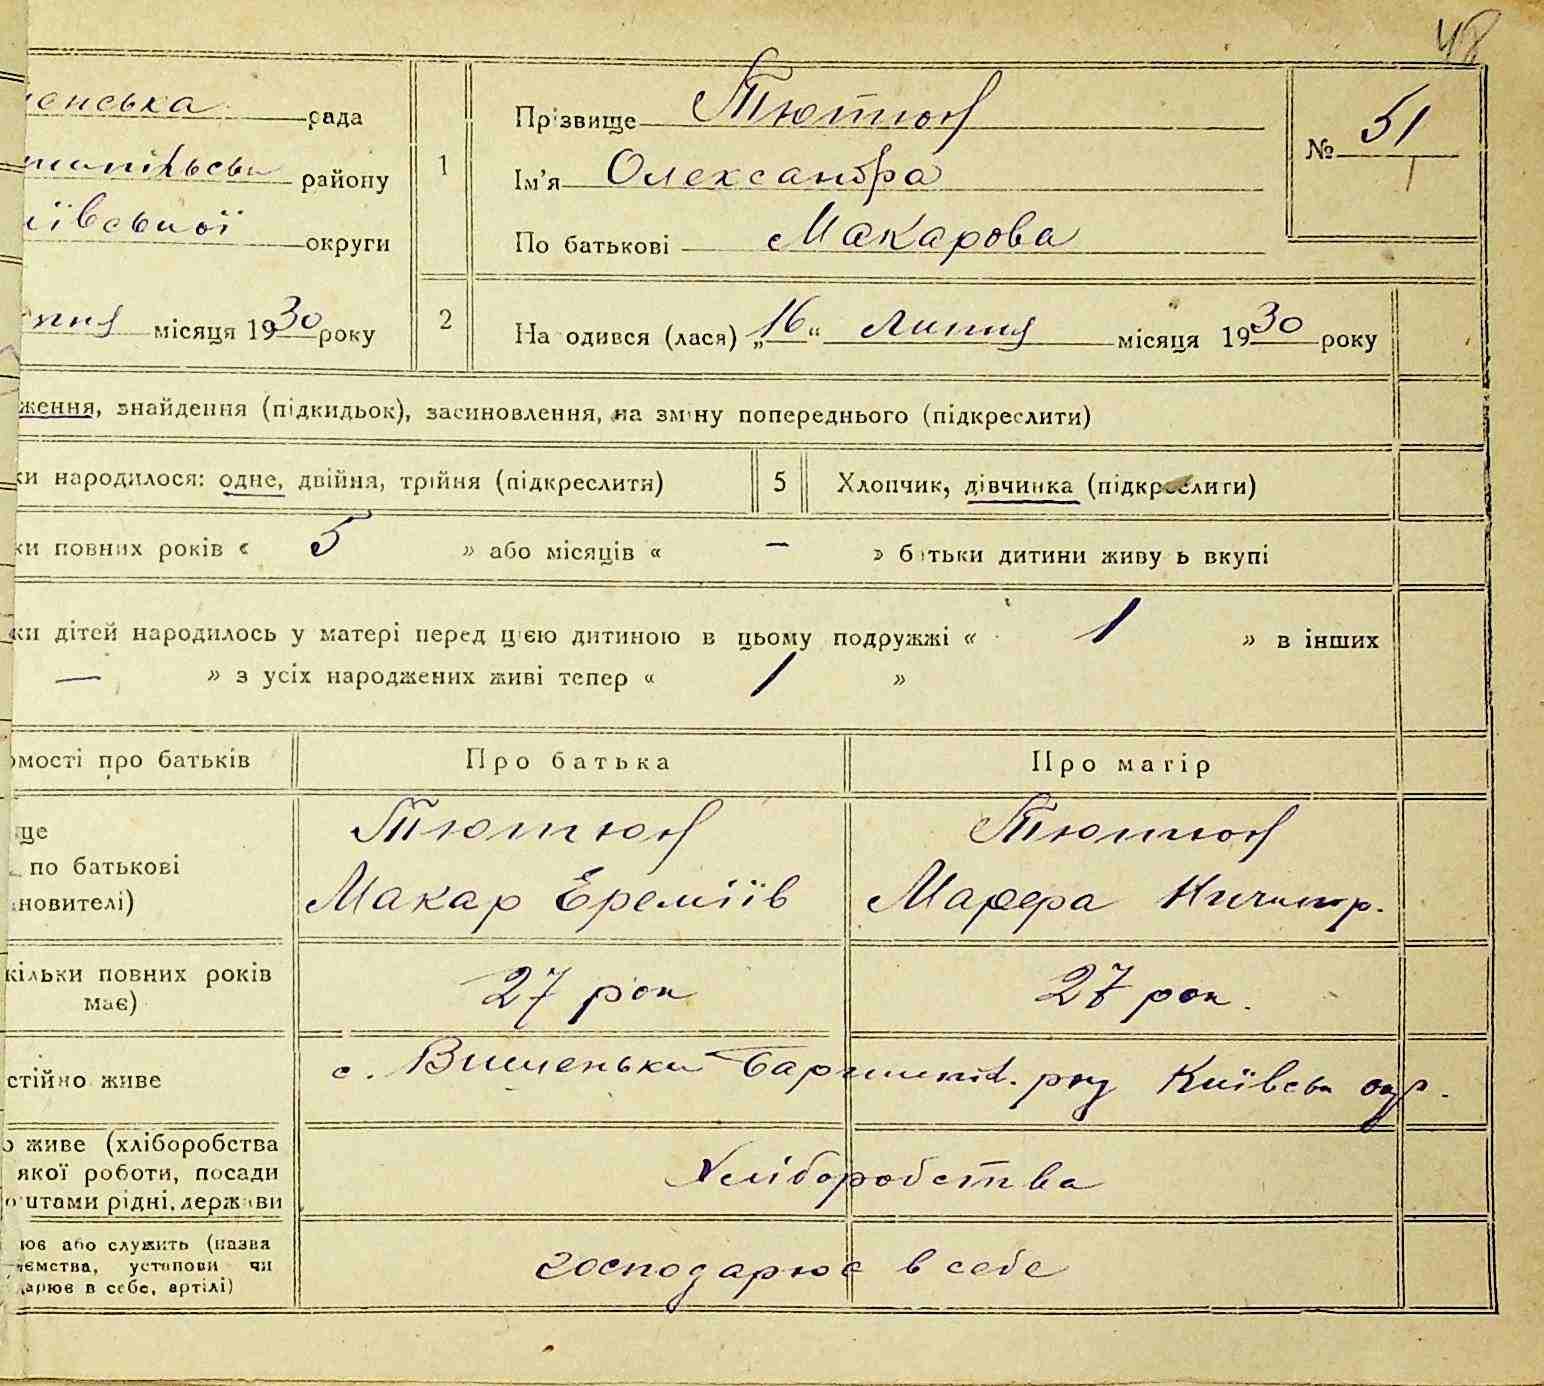 48
єнська рада
Прізвище Тютюн
№ 51
1
топільськ району
1
Ім'я Олександра
ївської округи
По батькові Макарова
пня місяця 1930 року
2
На одився (лася) „16“ Липня місяця 1930 року
ження, знайдення (підкидьок), засиновлення, на зміну попереднього (підкреслити)
ки народилося: одне, двійня, трійня (підкреслити)
5
Хлопчик, дівчинка (підкреслити)
ки повних років « 5 » або місяців « — » батьки дитини живу ь вкупі
ки дітей народилось у матері перед цією дитиною в цьому подружжі « 1 » в інших
— » з усіх народжених живі тепер « 1 »
омості про батьків
Про батька
Про матір
ще
по батькові
новителі)
Тютюн
Макар Ереміїв
Тютюн
Марфра Ничипор.
кільки повних років
має)
27 рок
27 рок.
стійно живе
с. Вишеньки Баришпіл. рну Київськ окр.
о живе (хліборобства
якої роботи, посади
оштами рідні, держави
Хліборобства
ює або служить (назва
ємства, установи чи
дарює в себе, артілі)
господарює в себе